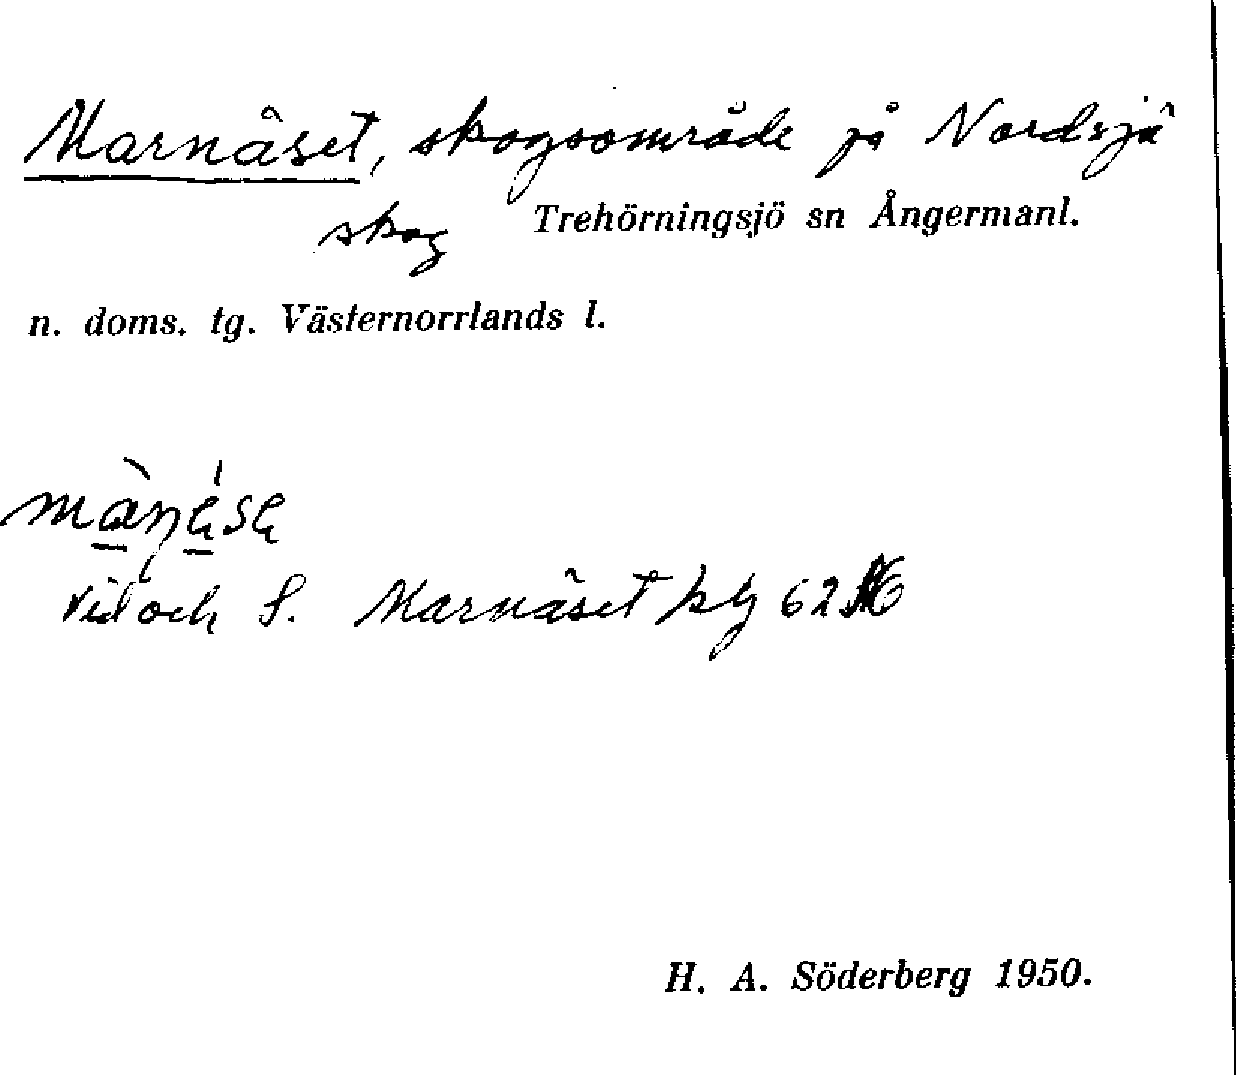 Marnäset, skogsområde på Nordsjö
skog Trehörningsjö sn Ångermanl.
n. doms. tg. Västernorrlands l.
vid och S. Marnäset
H. A. Söderberg 1950.